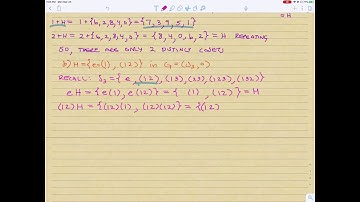 = H
1+H = 1+{6,2,8,4,0} = {7,3,9,5,1}
2+H = 2+{6,2,8,4,0} = {8,4,0,6,2} = H REPEATING
SO, THERE ARE ONLY 2 DISTINCT COSETS
b) H = {(1), (12)} in G = (S3, o)
RECALL: S3 = {e, (12), (13), (23), (123), (132)}
eH = {e(1), e(12)} = { (1) , (12) } = H
(12)H = {(12)(1), (12)(12)} = {(12)